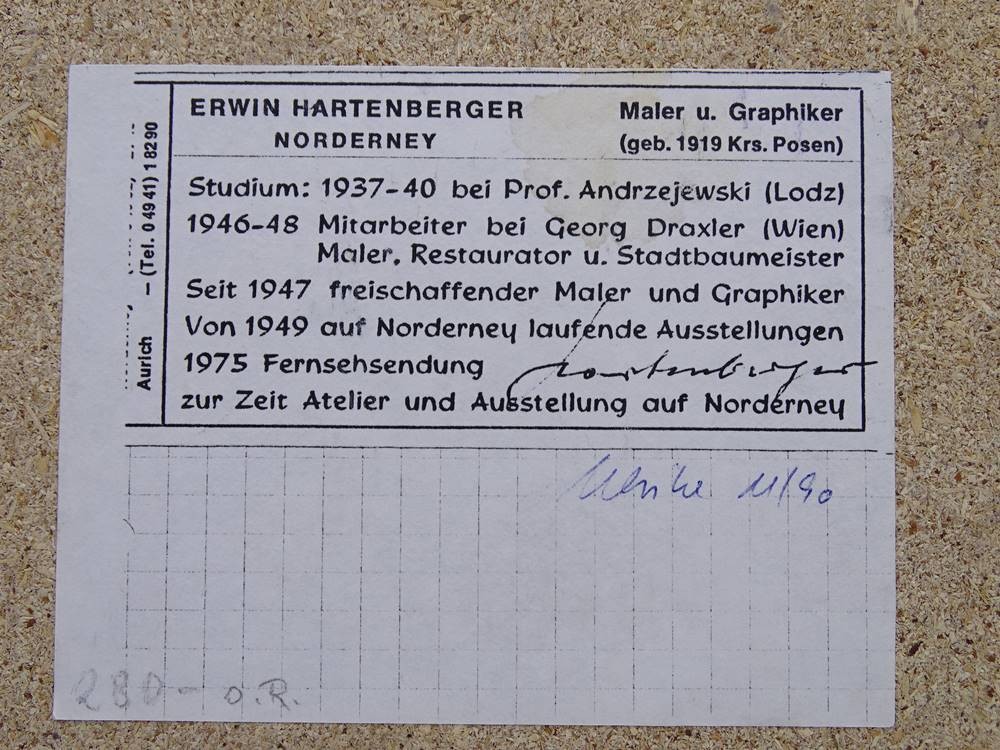 ERWIN HARTENBERGER
NORDERNEY
Maler u. Graphiker
(geb. 1919 Krs. Posen)
Studium: 1937-40 bei Prof. Andrzejewski (Lodz)
1946-48 Mitarbeiter bei Georg Draxler (Wien)
Maler, Restaurator u. Stadtbaumeister
Seit 1947 freischaffender Maler und Graphiker
Von 1949 auf Norderney laufende Ausstellungen
1975 Fernsehsendung
Hartenberger
zur Zeit Atelier und Ausstellung auf Norderney
Aurich – (Tel. 0 49 41) 1 82 90
Ulrike 11/90
280 - o.R.